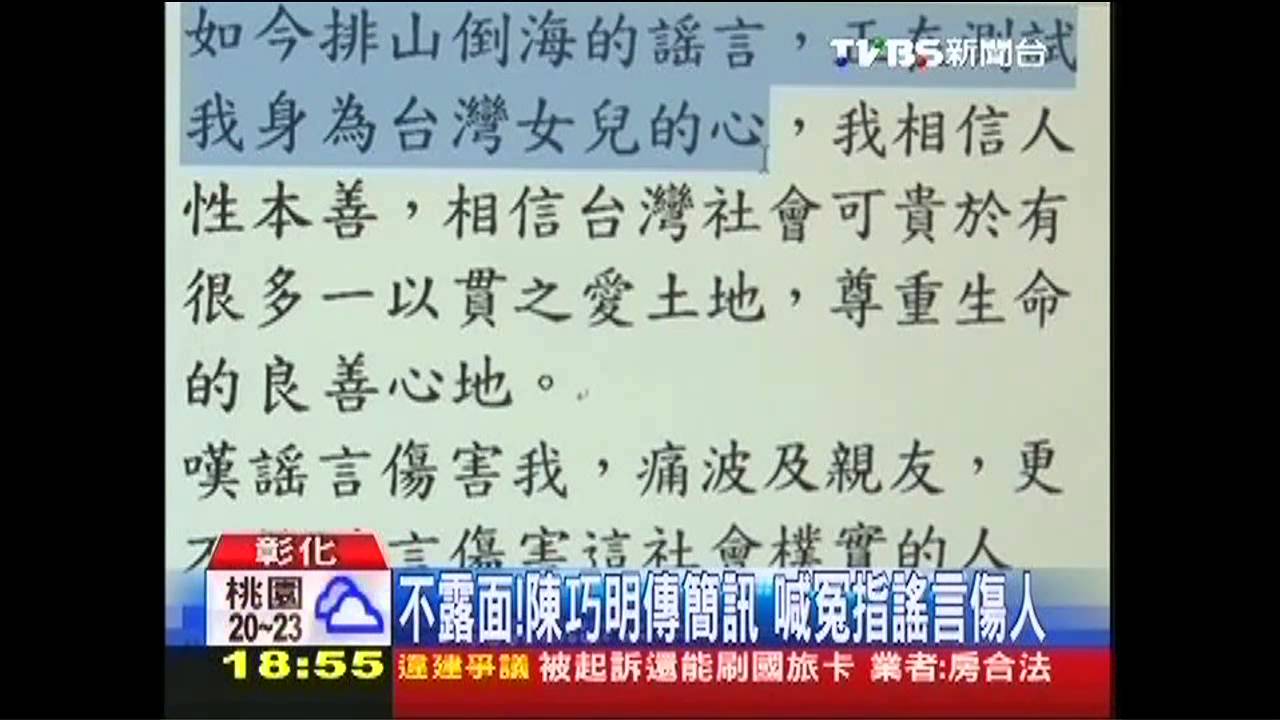 如今排山倒海的謠言,
TVBS新聞台
我身為台灣女兒的心,我相信人
性本善,相信台灣社會可貴於有
很多一以貫之愛土地,尊重生命
的良善心地。
嘆謠言傷害我,痛波及親友,更
言傷害這社會樸實的人
彰化
桃園
20~23
不露面!陳巧明傳簡訊 喊冤指謠言傷人
18:55
違建爭議 被起訴還能刷國旅卡 業者:房合法